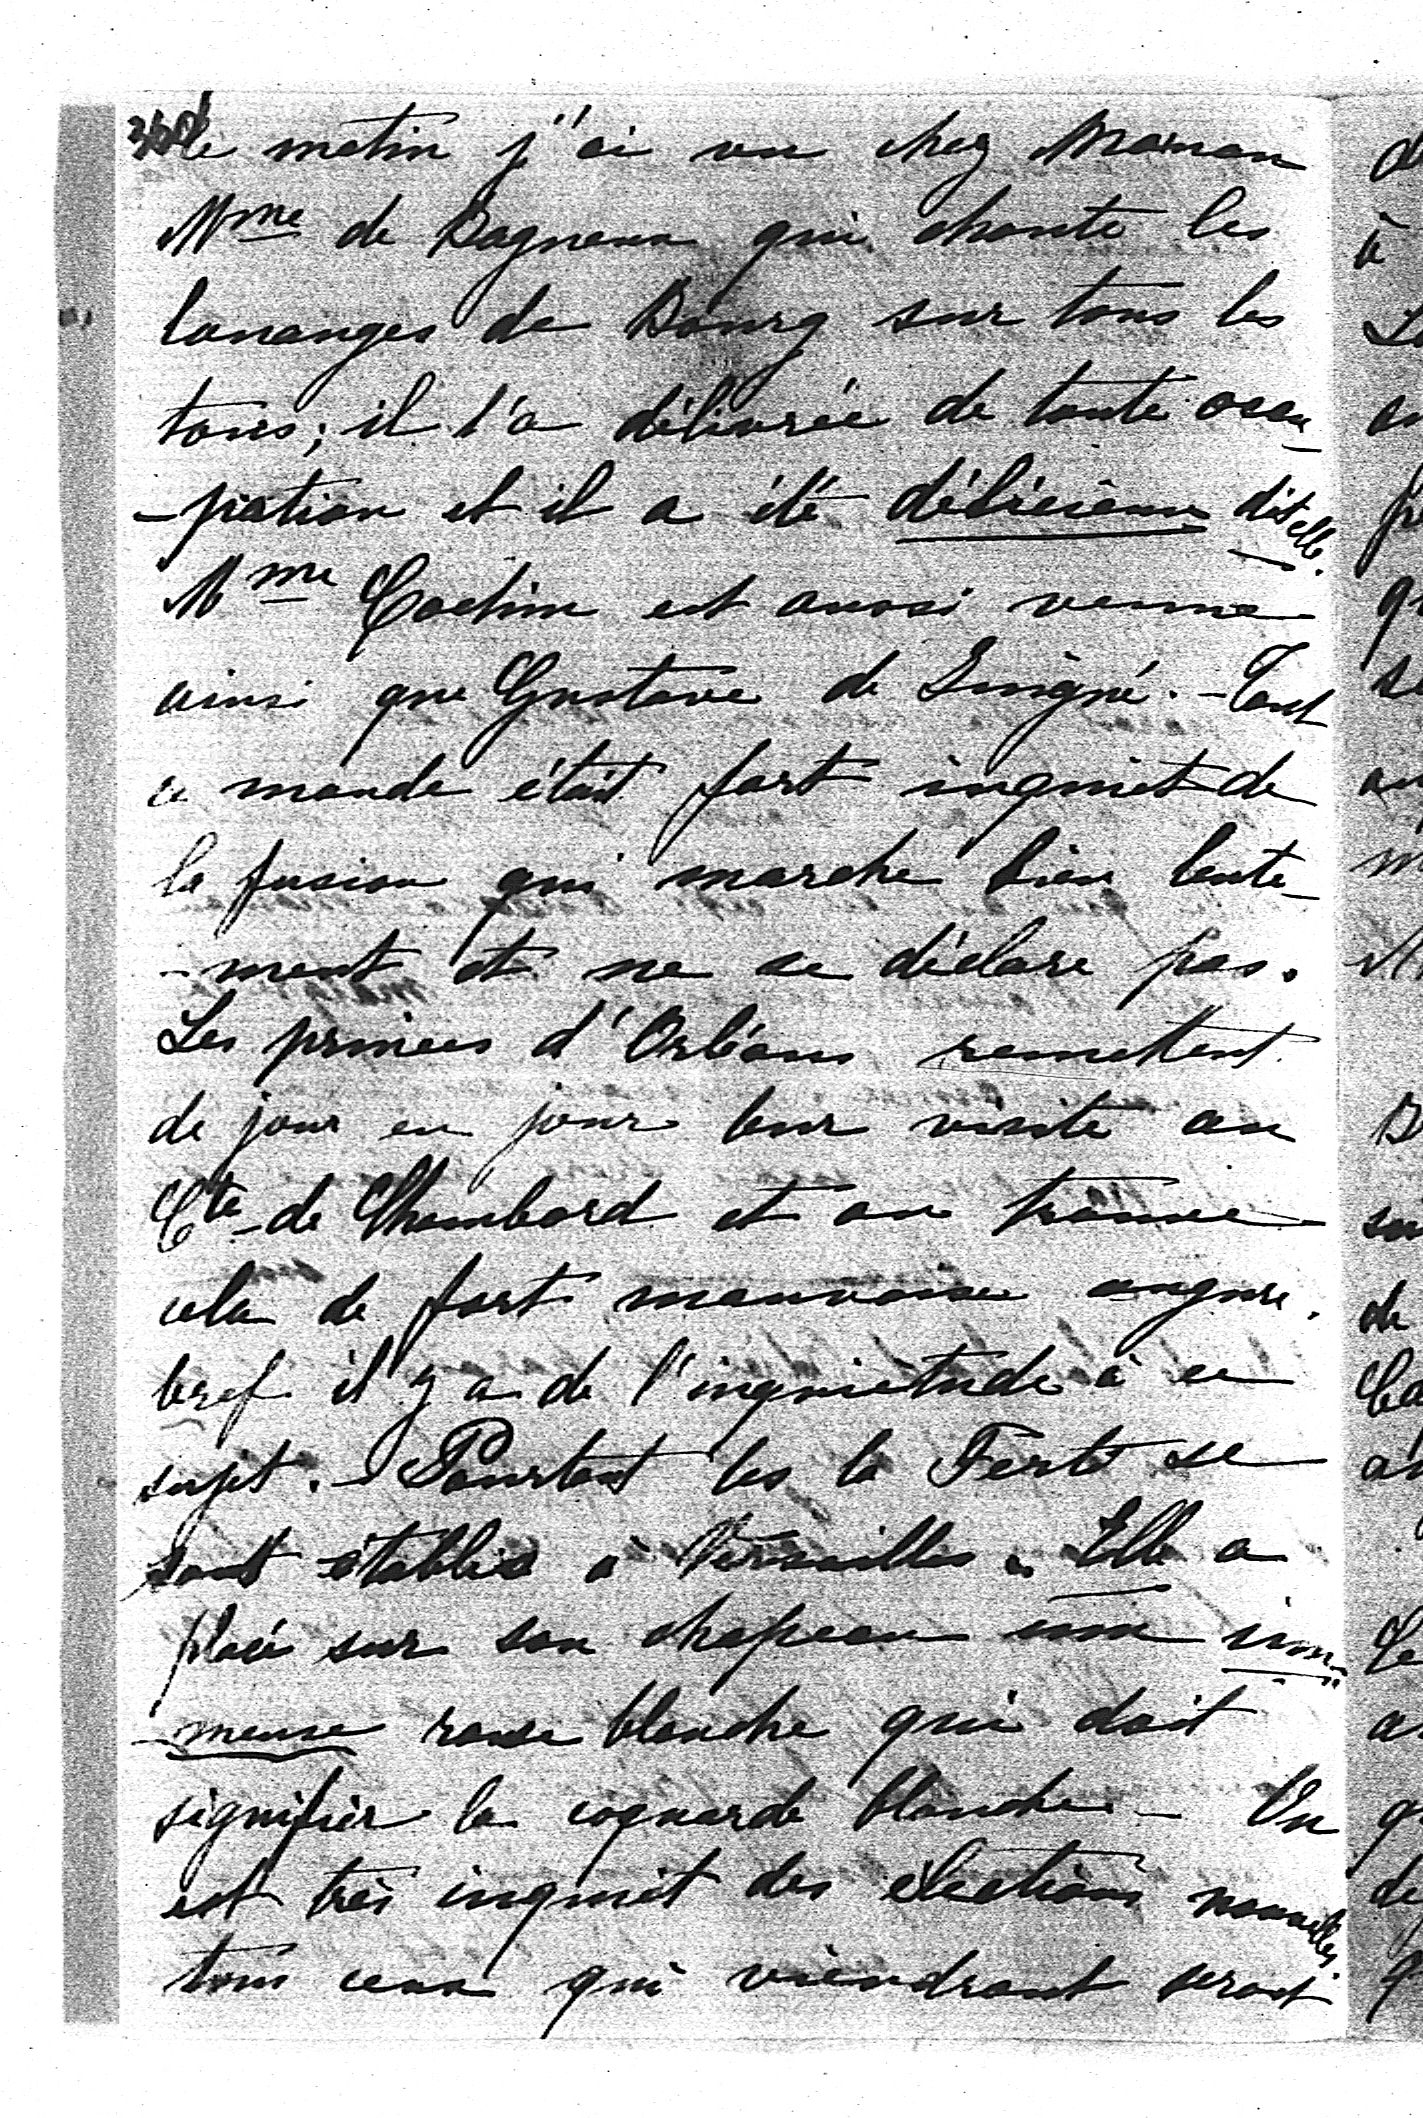 Ce matin j'ai vu chez Maman
Mme de Bagneux qui chante les
louanges de Bourg sur tous les
tons ; il l'a délivrée de toute occu
-pation et il a été délicieux dit elle.
Mme Cochin est aussi venue
ainsi que Gustave de Suigné. - Tout
ce monde était fort inquiet de
la fusion qui marche bien lente-
-ment et ne se déclare pas.
Les princes d'Orléans remettent
de jour en jour leur visite au
Cte de Chambord et on trouve
cela de fort mauvaise augure.
bref il y a de l'inquiétude à ce
sujet. - Pourtant les la Ferté se
sont établis à Versailles. Elle a
placé sur son chapeau une im-
-mense rose blanche qui doit
signifier la coquarde blanche - On
est très inquiet des élections nouvelles.
tous ceux qui viendront seront